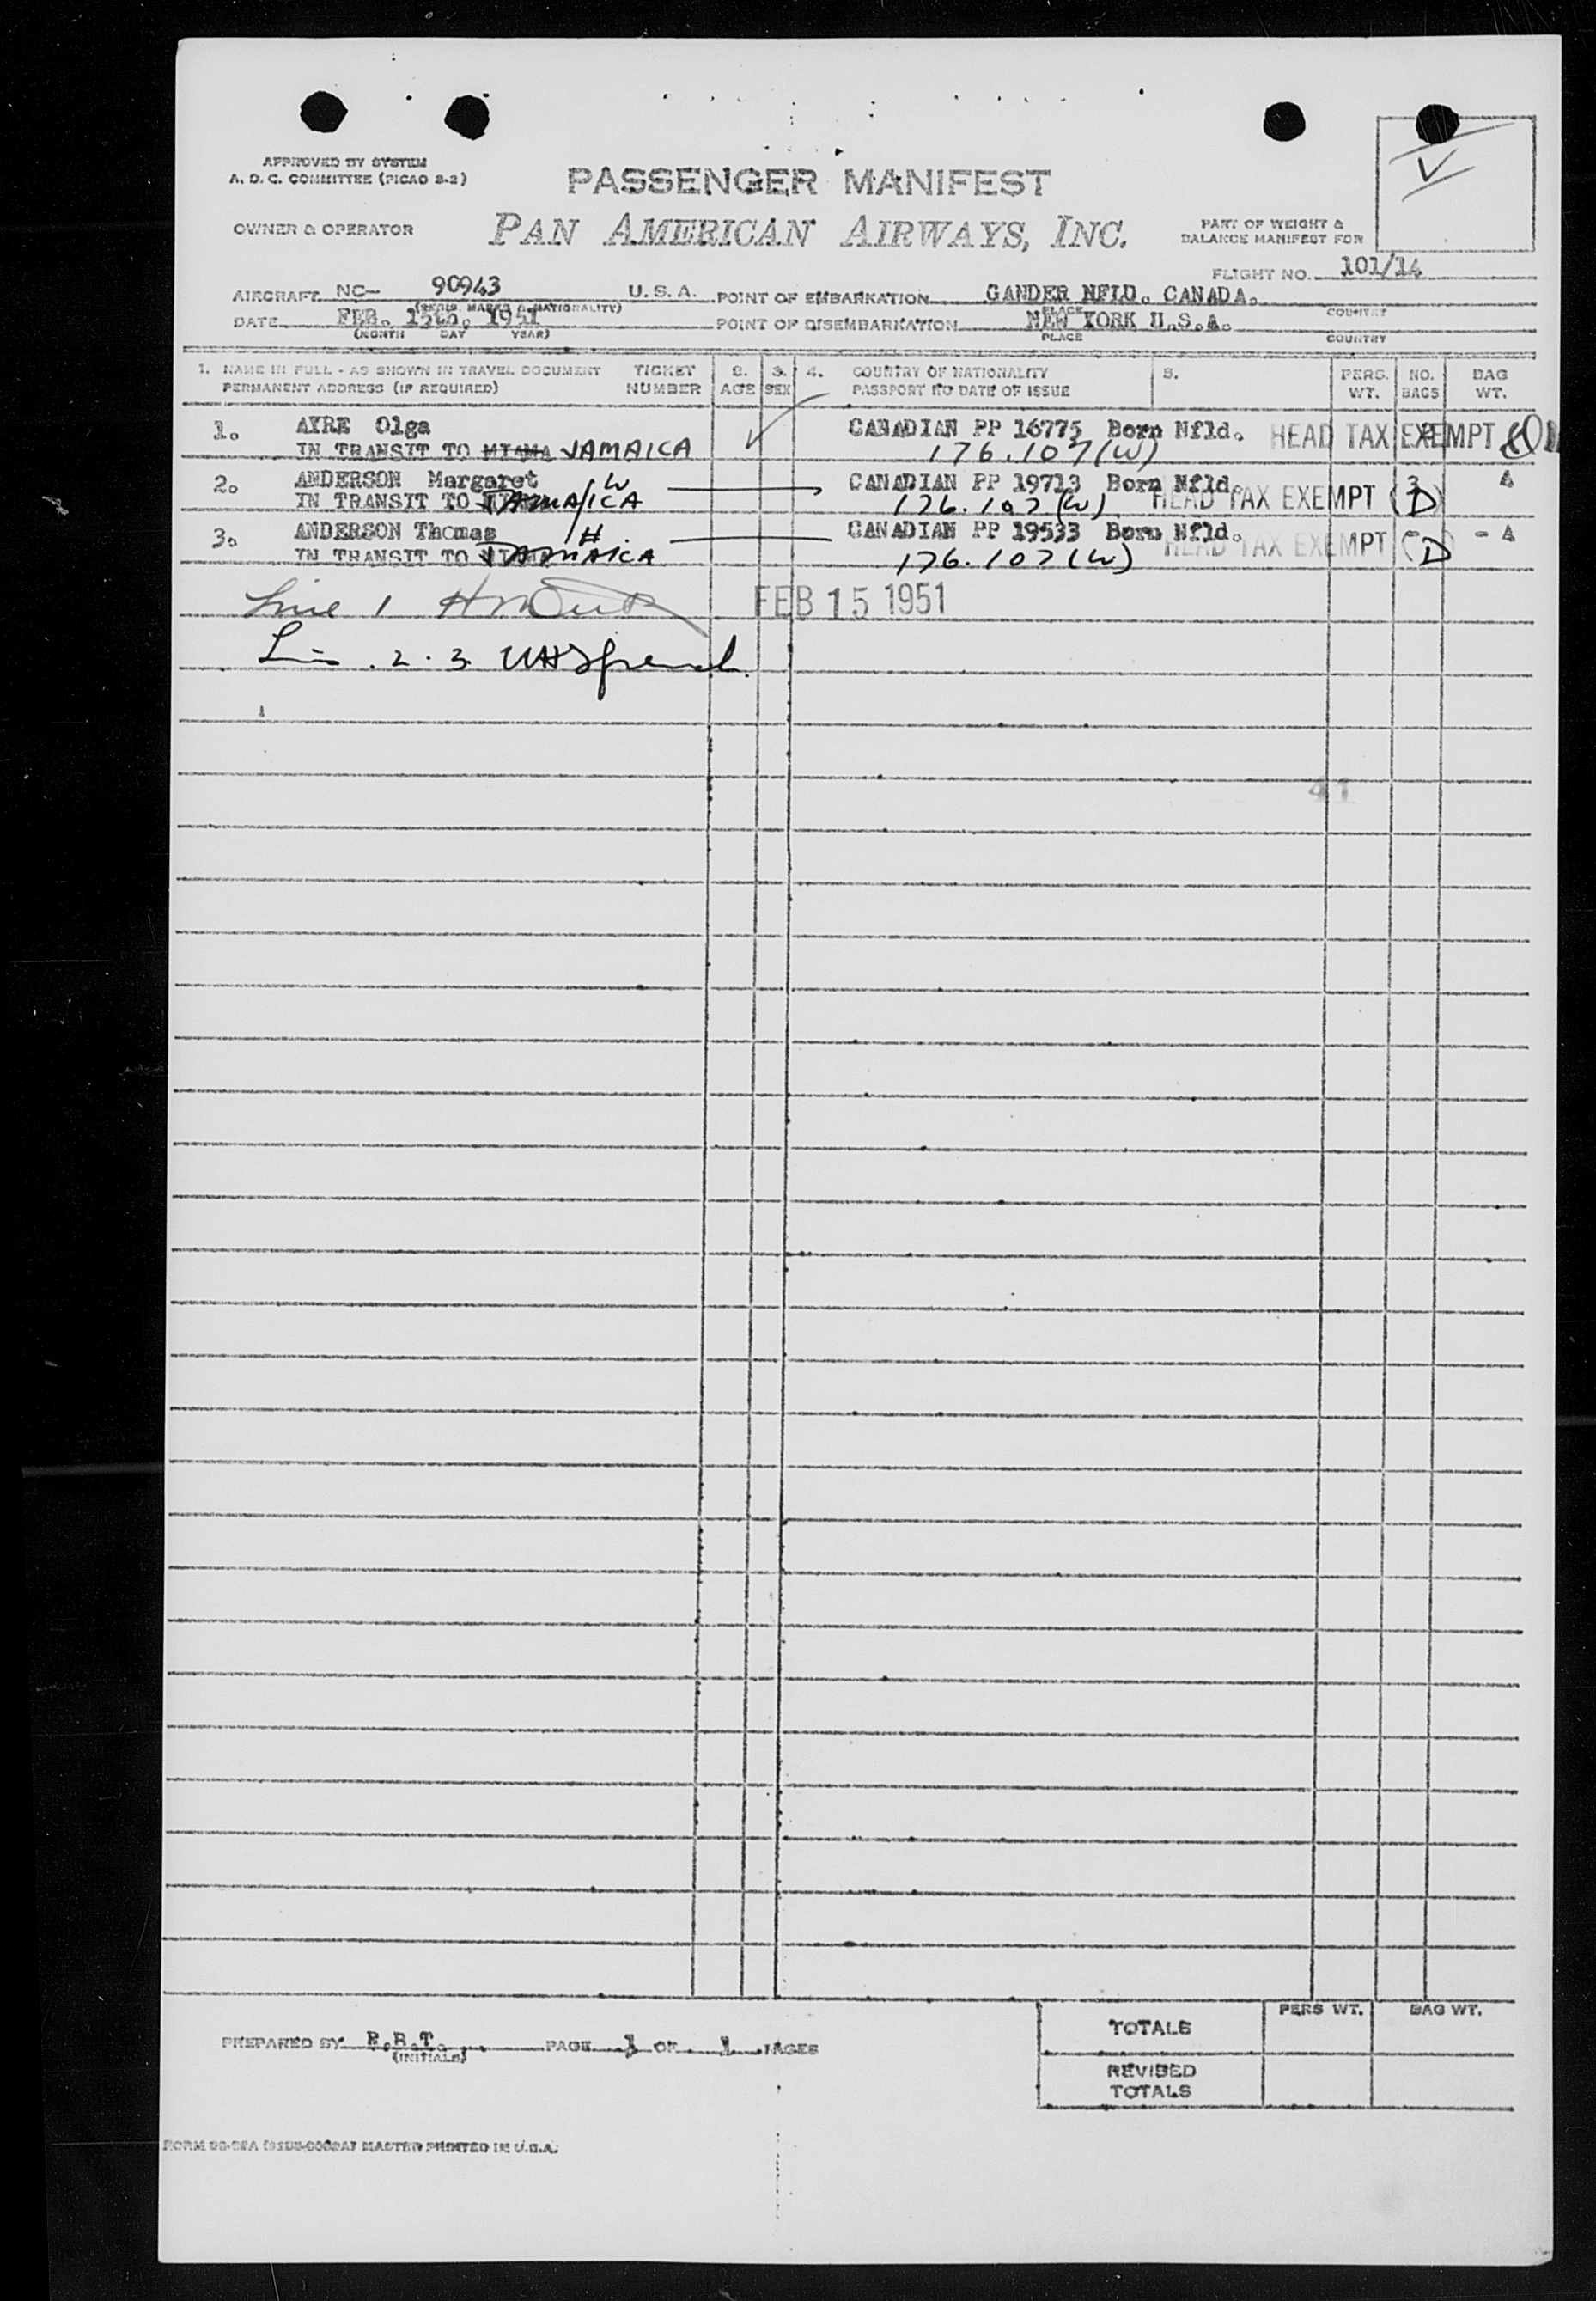 APPROVED BY SYSTEM
A. O. C. COMMITTEE (PICAO S-2)
PASSENGER MANIFEST
OWNER & OPERATOR
PAN AMERICAN AIRWAYS, INC.
PART OF WEIGHT &
BALANCE MANIFEST FOR
FLIGHT NO. 101/14
AIRCRAFT NC- 90943 U.S.A. POINT OF EMBARKATION GANDER NFLD. CANADA.
(REGIS. MARKS & NATIONALITY) PLACE COUNTRY
DATE FEB. 15th, 1951 POINT OF DISEMBARKATION NEW YORK U.S.A.
(MONTH DAY YEAR) PLACE COUNTRY
1. NAME IN FULL - AS SHOWN IN TRAVEL DOCUMENT TICKET 2. 3. 4. COUNTRY OF NATIONALITY 5. PERS. NO. BAG
PERMANENT ADDRESS (IF REQUIRED) NUMBER AGE SEX PASSPORT NO DATE OF ISSUE WT. BAGS WT.
1. AYRE Olga CANADIAN PP 16775 Born Nfld. HEAD TAX EXEMPT
IN TRANSIT TO MIAMA JAMAICA 176.107(W)
2. ANDERSON Margaret W CANADIAN PP 19713 Born Nfld. 3 4
IN TRANSIT TO JAMAICA 176.107(W) HEAD TAX EXEMPT (D)
3. ANDERSON Thomas H CANADIAN PP 19533 Born Nfld. - 4
IN TRANSIT TO JAMAICA 176.107(W) HEAD TAX EXEMPT (D
Line 1 FEB 15 1951
2. 3.
41
TOTALS PERS WT. BAG WT.
PREPARED BY PAGE 1 OF 1 PAGES
(INITIALS)
REVISED
TOTALS
MASTER PRINTED IN U.S.A.